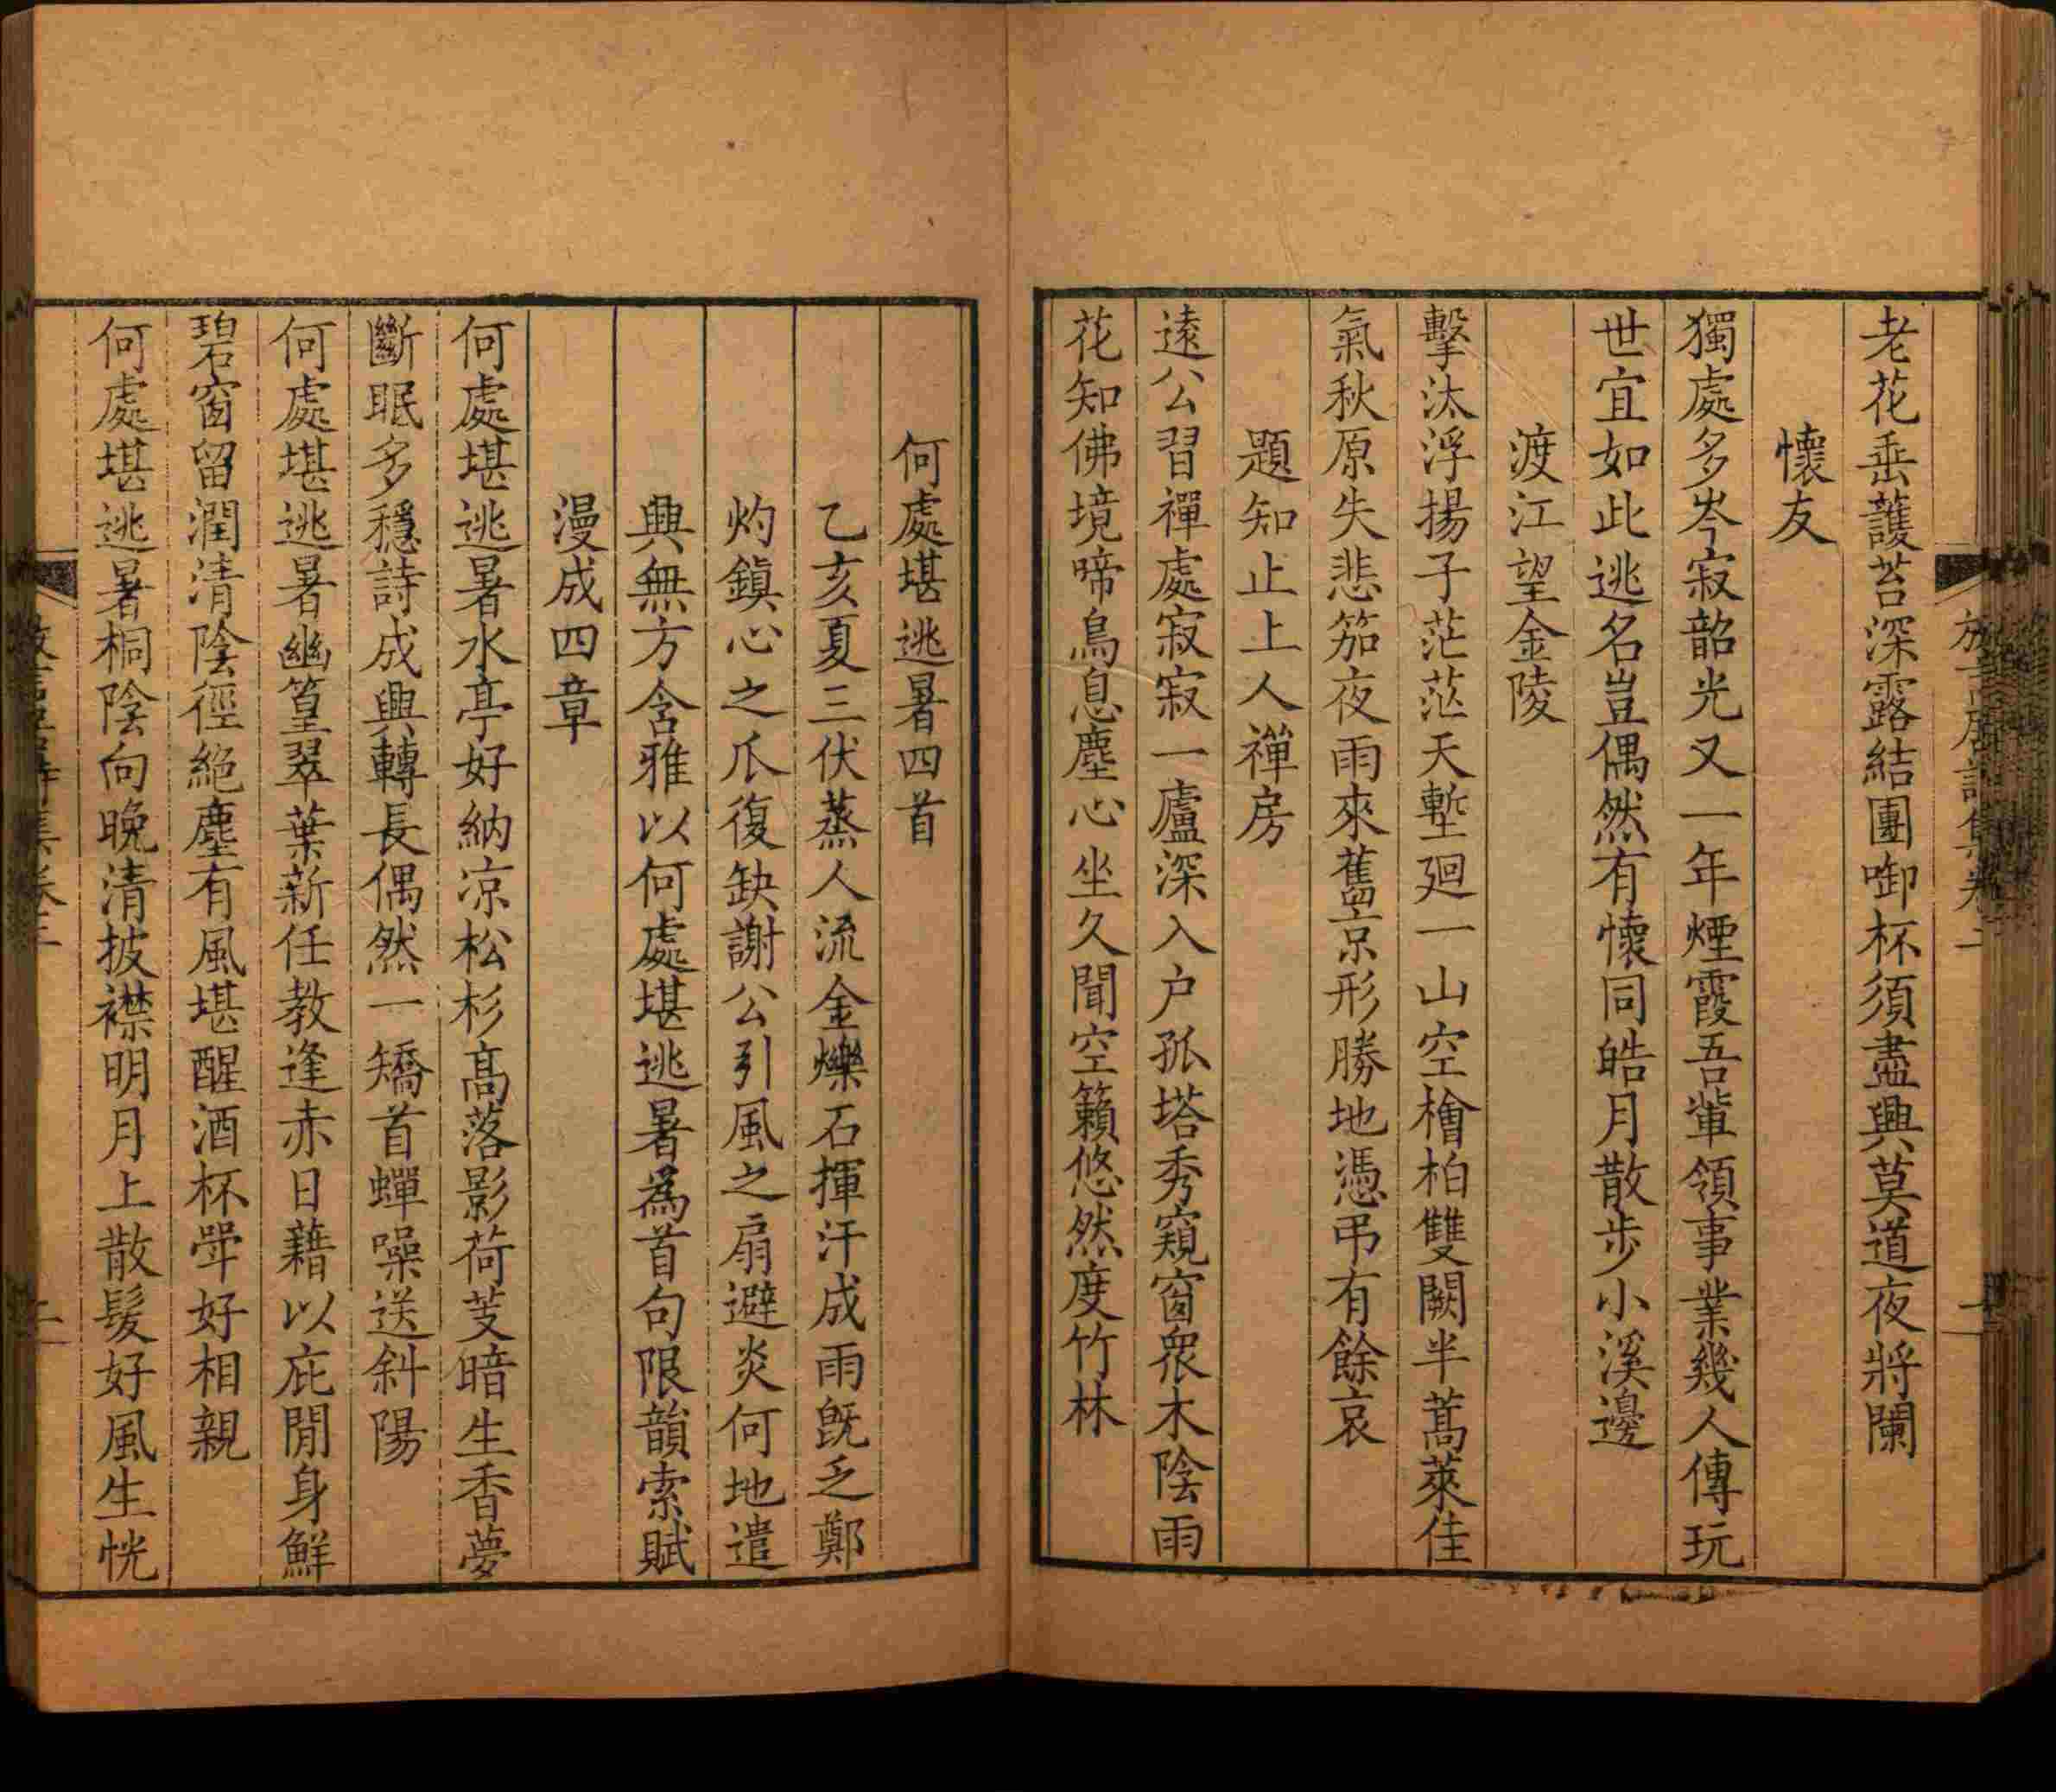 老花垂護苔深露結團啣杯須盡興莫道夜將闌
懷友
獨處多岑寂韶光又一年煙霞吾輩領事業幾人傳玩
世宜如此逃名豈偶然有懷同皓月散步小溪邊
渡江望金陵
擊汰浮揚子茫茫天塹迴一山空檜柏雙闕半蒿萊佳
氣秋原失悲笳夜雨來舊京形勝地憑弔有餘哀
題知止上人禪房
遠公習禪處寂寂一廬深入户孤塔秀窺窗衆木陰雨
花知佛境啼鳥息塵心坐久聞空籟悠然度竹林
何處堪逃暑四首
乙亥夏三伏蒸人流金爍石揮汗成雨旣乏鄭
灼鎮心之爪復缺謝公引風之扇避炎何地遣
興無方含雅以何處堪逃暑爲首句限韻索賦
漫成四章
何處堪逃暑水亭好納凉松杉高落影荷芰暗生香夢
斷眠多穩詩成興轉長偶然一矯首蟬噪送斜陽
何處堪逃暑幽篁翠葉新任教逢赤日藉以庇閒身鮮
碧窗留潤清陰徑絕塵有風堪醒酒杯斝好相親
何處堪逃暑桐陰向晚清披襟明月上散髮好風生恍